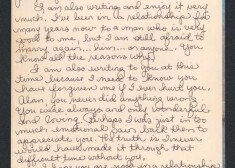 I am also writing and enjoy it very
much. I've been in a relationship for
many years now to a man who is very
good to me, but I am still afraid to
marry again... him... or anyone. You
know all the reasons why!
I am also writing to you at this
time because I need to know you
have forgiven me if I ever hurt you.
Alan, you never did anything wrong
You were always and only wonderful
and loving. Perhaps I was just in too
much emotional pain back then to
appreciate you. The truth is I never
would have made it through that
difficult time without you.
I hope you are now in a relationship